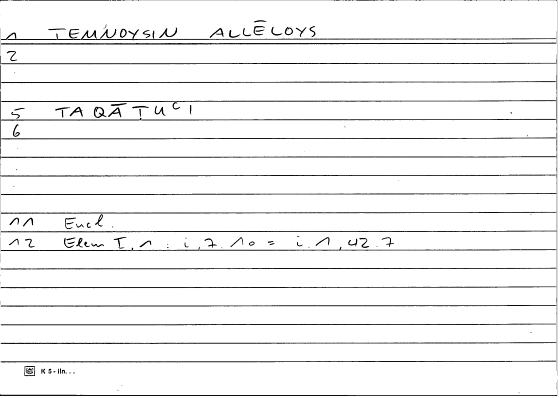 1 TEMNOYSIN ALLĒLOYS
2
5 TAQĀṬUʿI
6
11 Eucl.
12 Elem I, 1 : i, 7. 10 = i. 1, 42. 7
K 5 - iln. . .